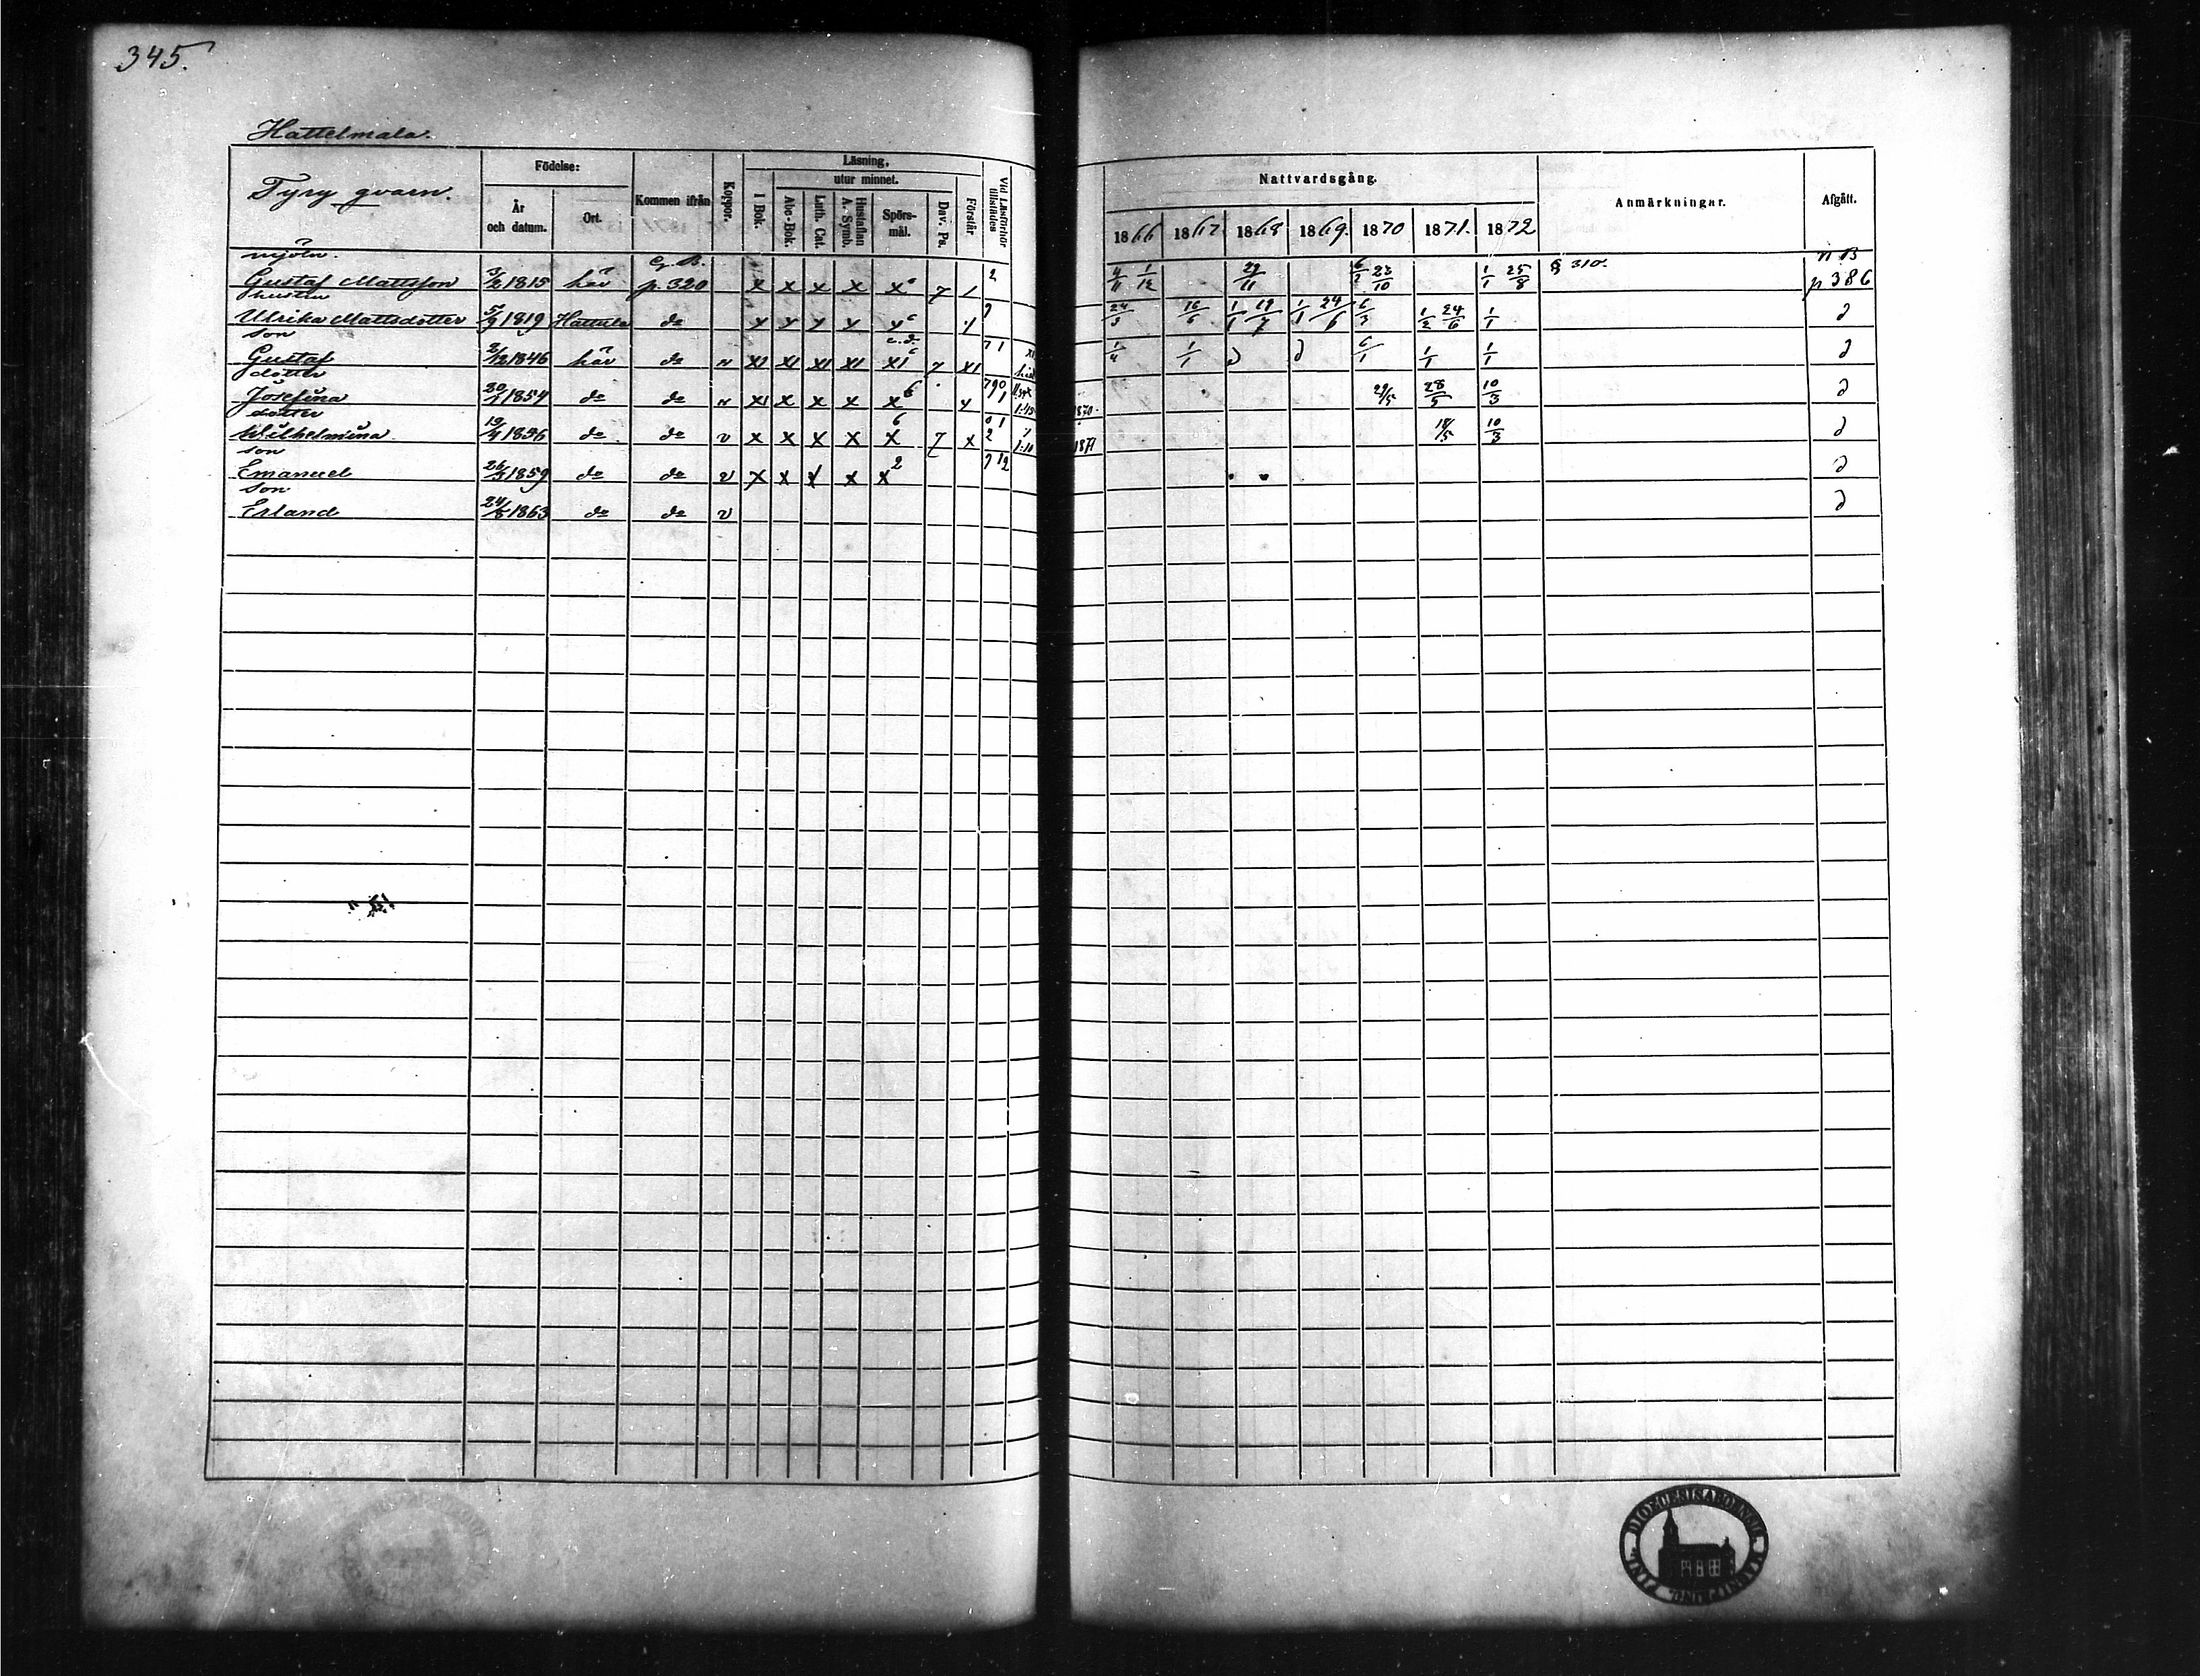 345.
Hattelmala.
Tyry qvarn.
Födelse:
År och datum.
Ort.
Kommen ifrån
Koppor.
Läsning,
utur minnet.
I Bok.
Abc-Bok.
Luth. Cat.
Hustaflan A. Symb.
Spörsmål.
Dav. Ps.
Förstår
Vid Läsförhör tillstädes
Nattvardsgång.
1866 1867 1868 1869. 1870 1871. 1872
Anmärkningar.
Afgått.
mjöln. G. B. n B
Gustaf Mattsson 3/2 1815 här p. 320 x x x x x 7 1 2 4/11 1/12 29/11 6/1 23/10 1/1 25/8 § 310. p 386
hustru
Ulrika Mattsdotter 5/9 1819 Hattula do 24/3 16/6 1/1 19/7 1/1 24/6 6/3 1/2 24/6 1/1
son
Gustaf 2/12 1846 här do XI XI XI XI XI 7 XI 1/4 1/1 6/1 1/1 1/1
dotter
Josefina 30/1 1854 do do XI x x x x 1870. 29/5 28/5 10/3
dotter
Wilhelmina 19/4 1856 do do v x x x x x 7 x 1871 18/5 10/3
son
Emanuel 26/3 1859 do do v x x x x x 2
son
Erland 24/8 1863 do do v
DIOECESIS ABOENSIS